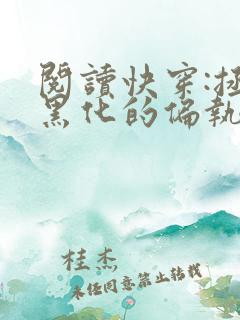 閱讀快穿:拯
黑化的偏執
桂杰
未经同意禁止转载